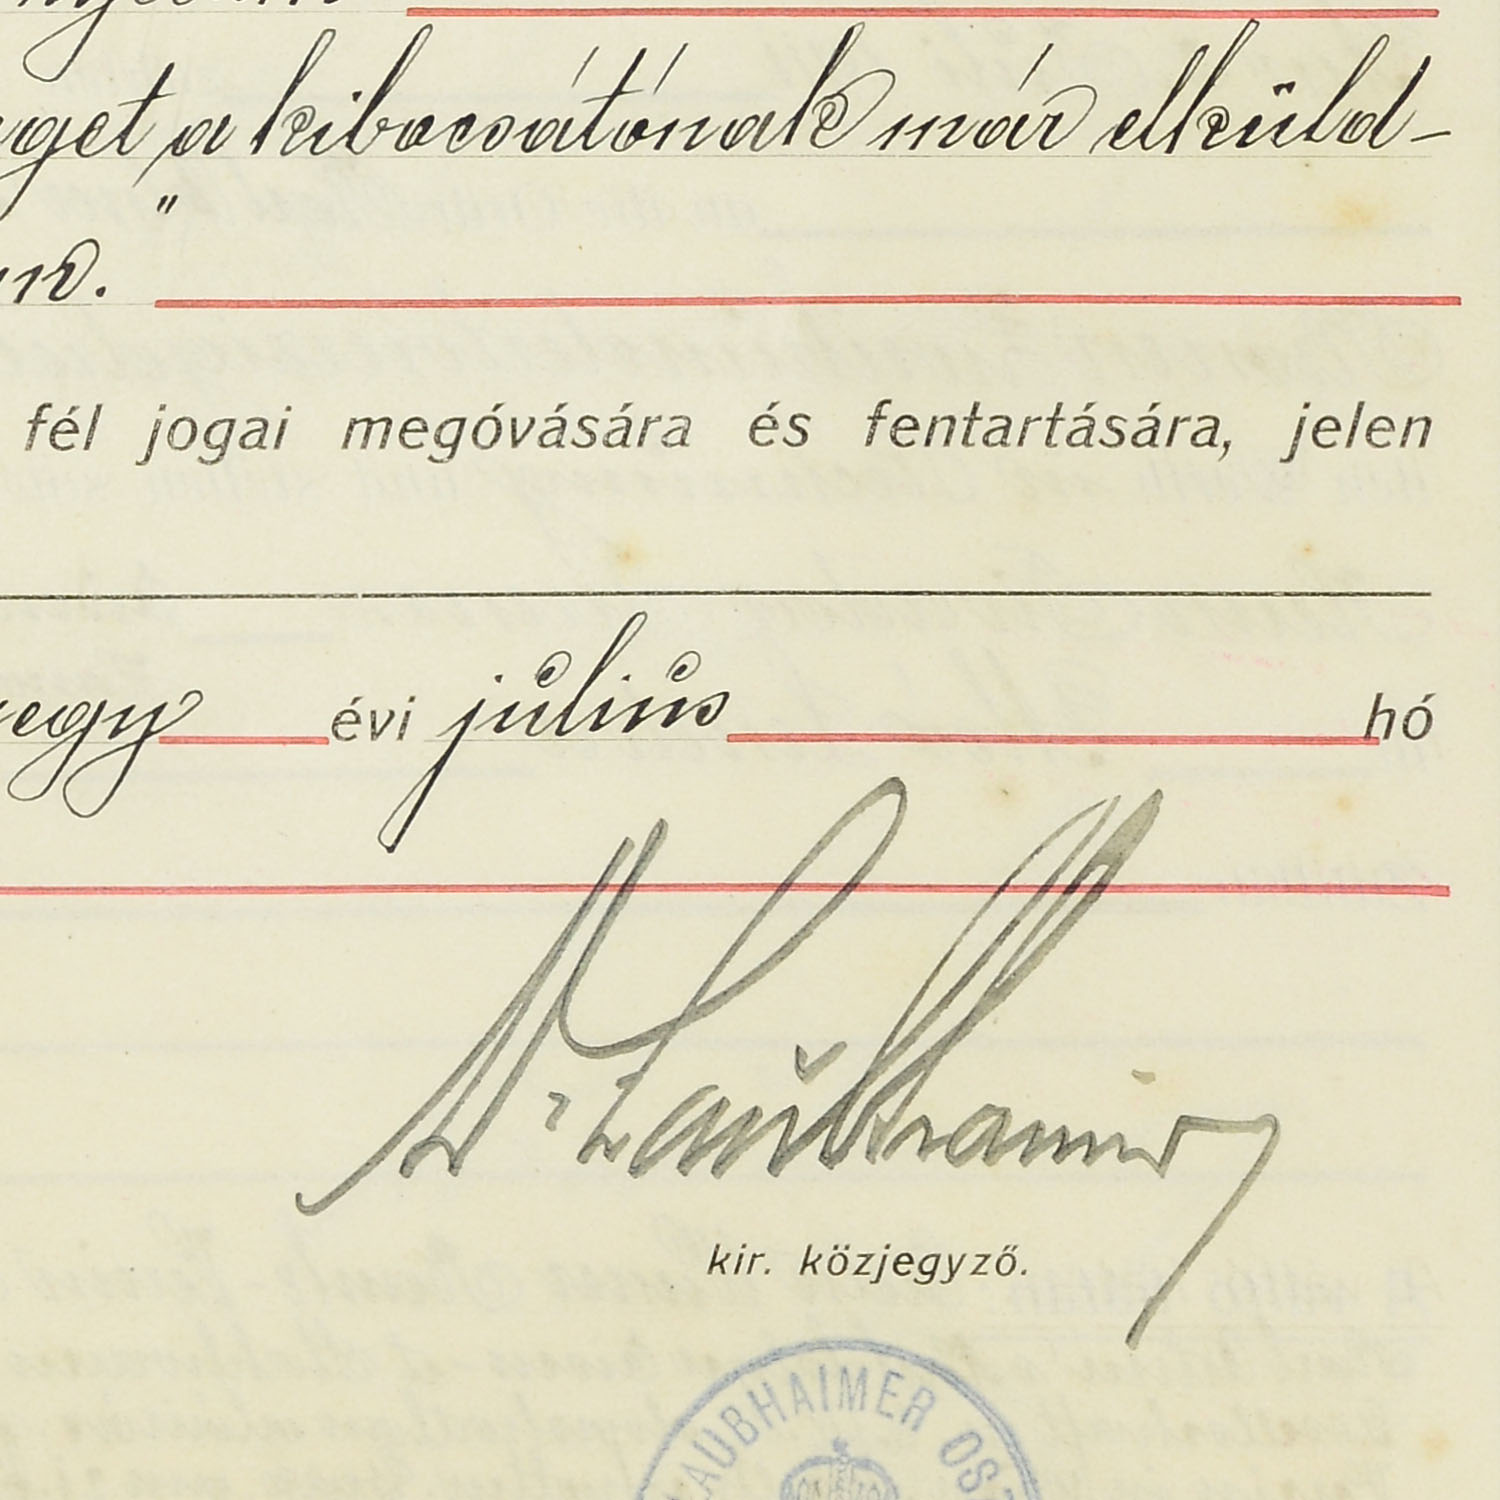 a kibocsátónak már elküld-
"
fél jogai megóvására és fentartására, jelen
egy évi július hó
Dr Laubhaimer
kir. közjegyző.
LAUBHAIMER OSZ